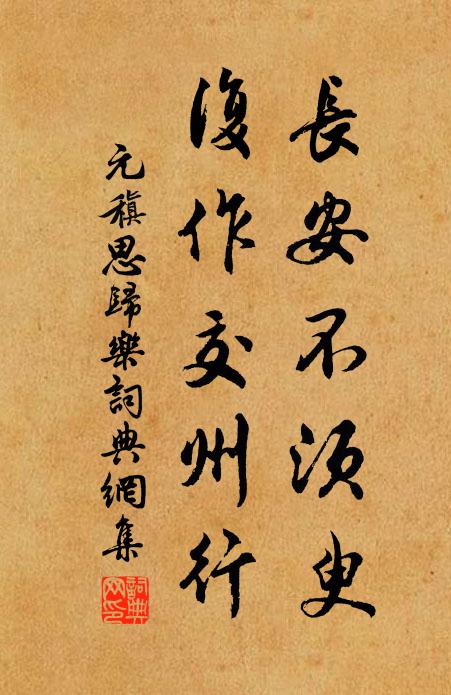 長安不須臾
復作交州行
元稹思歸樂詞典網集
詞典網印